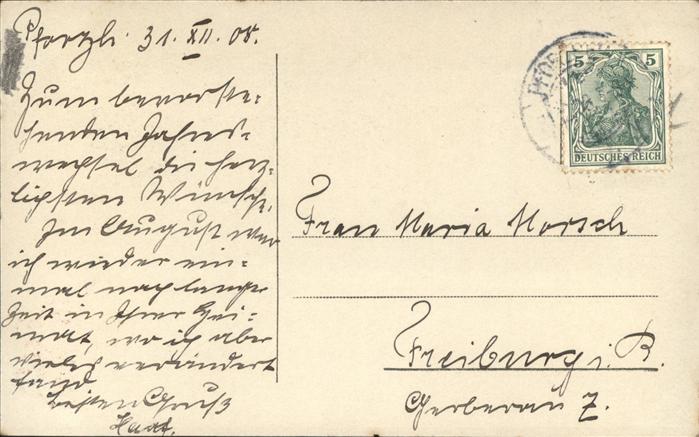 Pforzh. 31. XII. 08.
Zum bevorste-
henden Jahres-
wechsel die herz-
lichsten Wünsche.
Im August war
ich wieder ein-
mal nach langer
Zeit in Ihrer Hei-
mat, wo ich aber
vieles verändert
fand.
Besten Gruß
5 5
DEUTSCHES REICH
Frau Maria Morsch
Freiburg i. B.
Gerberau 7.